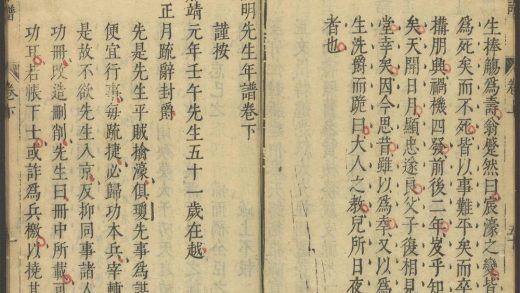 生捧觴為壽翁蹙然曰宸濠之變皆
為死矣而不死皆以事難平矣而卒
搆朋興禍機四發前後二年岌乎知
矣天開日月顯忠遂良父子復相見
堂幸矣因今思昔雖以為幸又以為
生洗爵而跪曰大人之教兒所日夜
者也
明先生年譜卷下
謹按
靖元年壬午先生五十一歲在越
正月疏辭封爵
先是先生平賊擒濠俱瓊先事為謀
便宜行事每疏捷必歸功本兵宰輔
是故不欲先生入京反抑同事諸人
功冊改造刪削先生曰冊中所載可
功耳若帳下士或詐為兵檄以撓其
譜
卷下